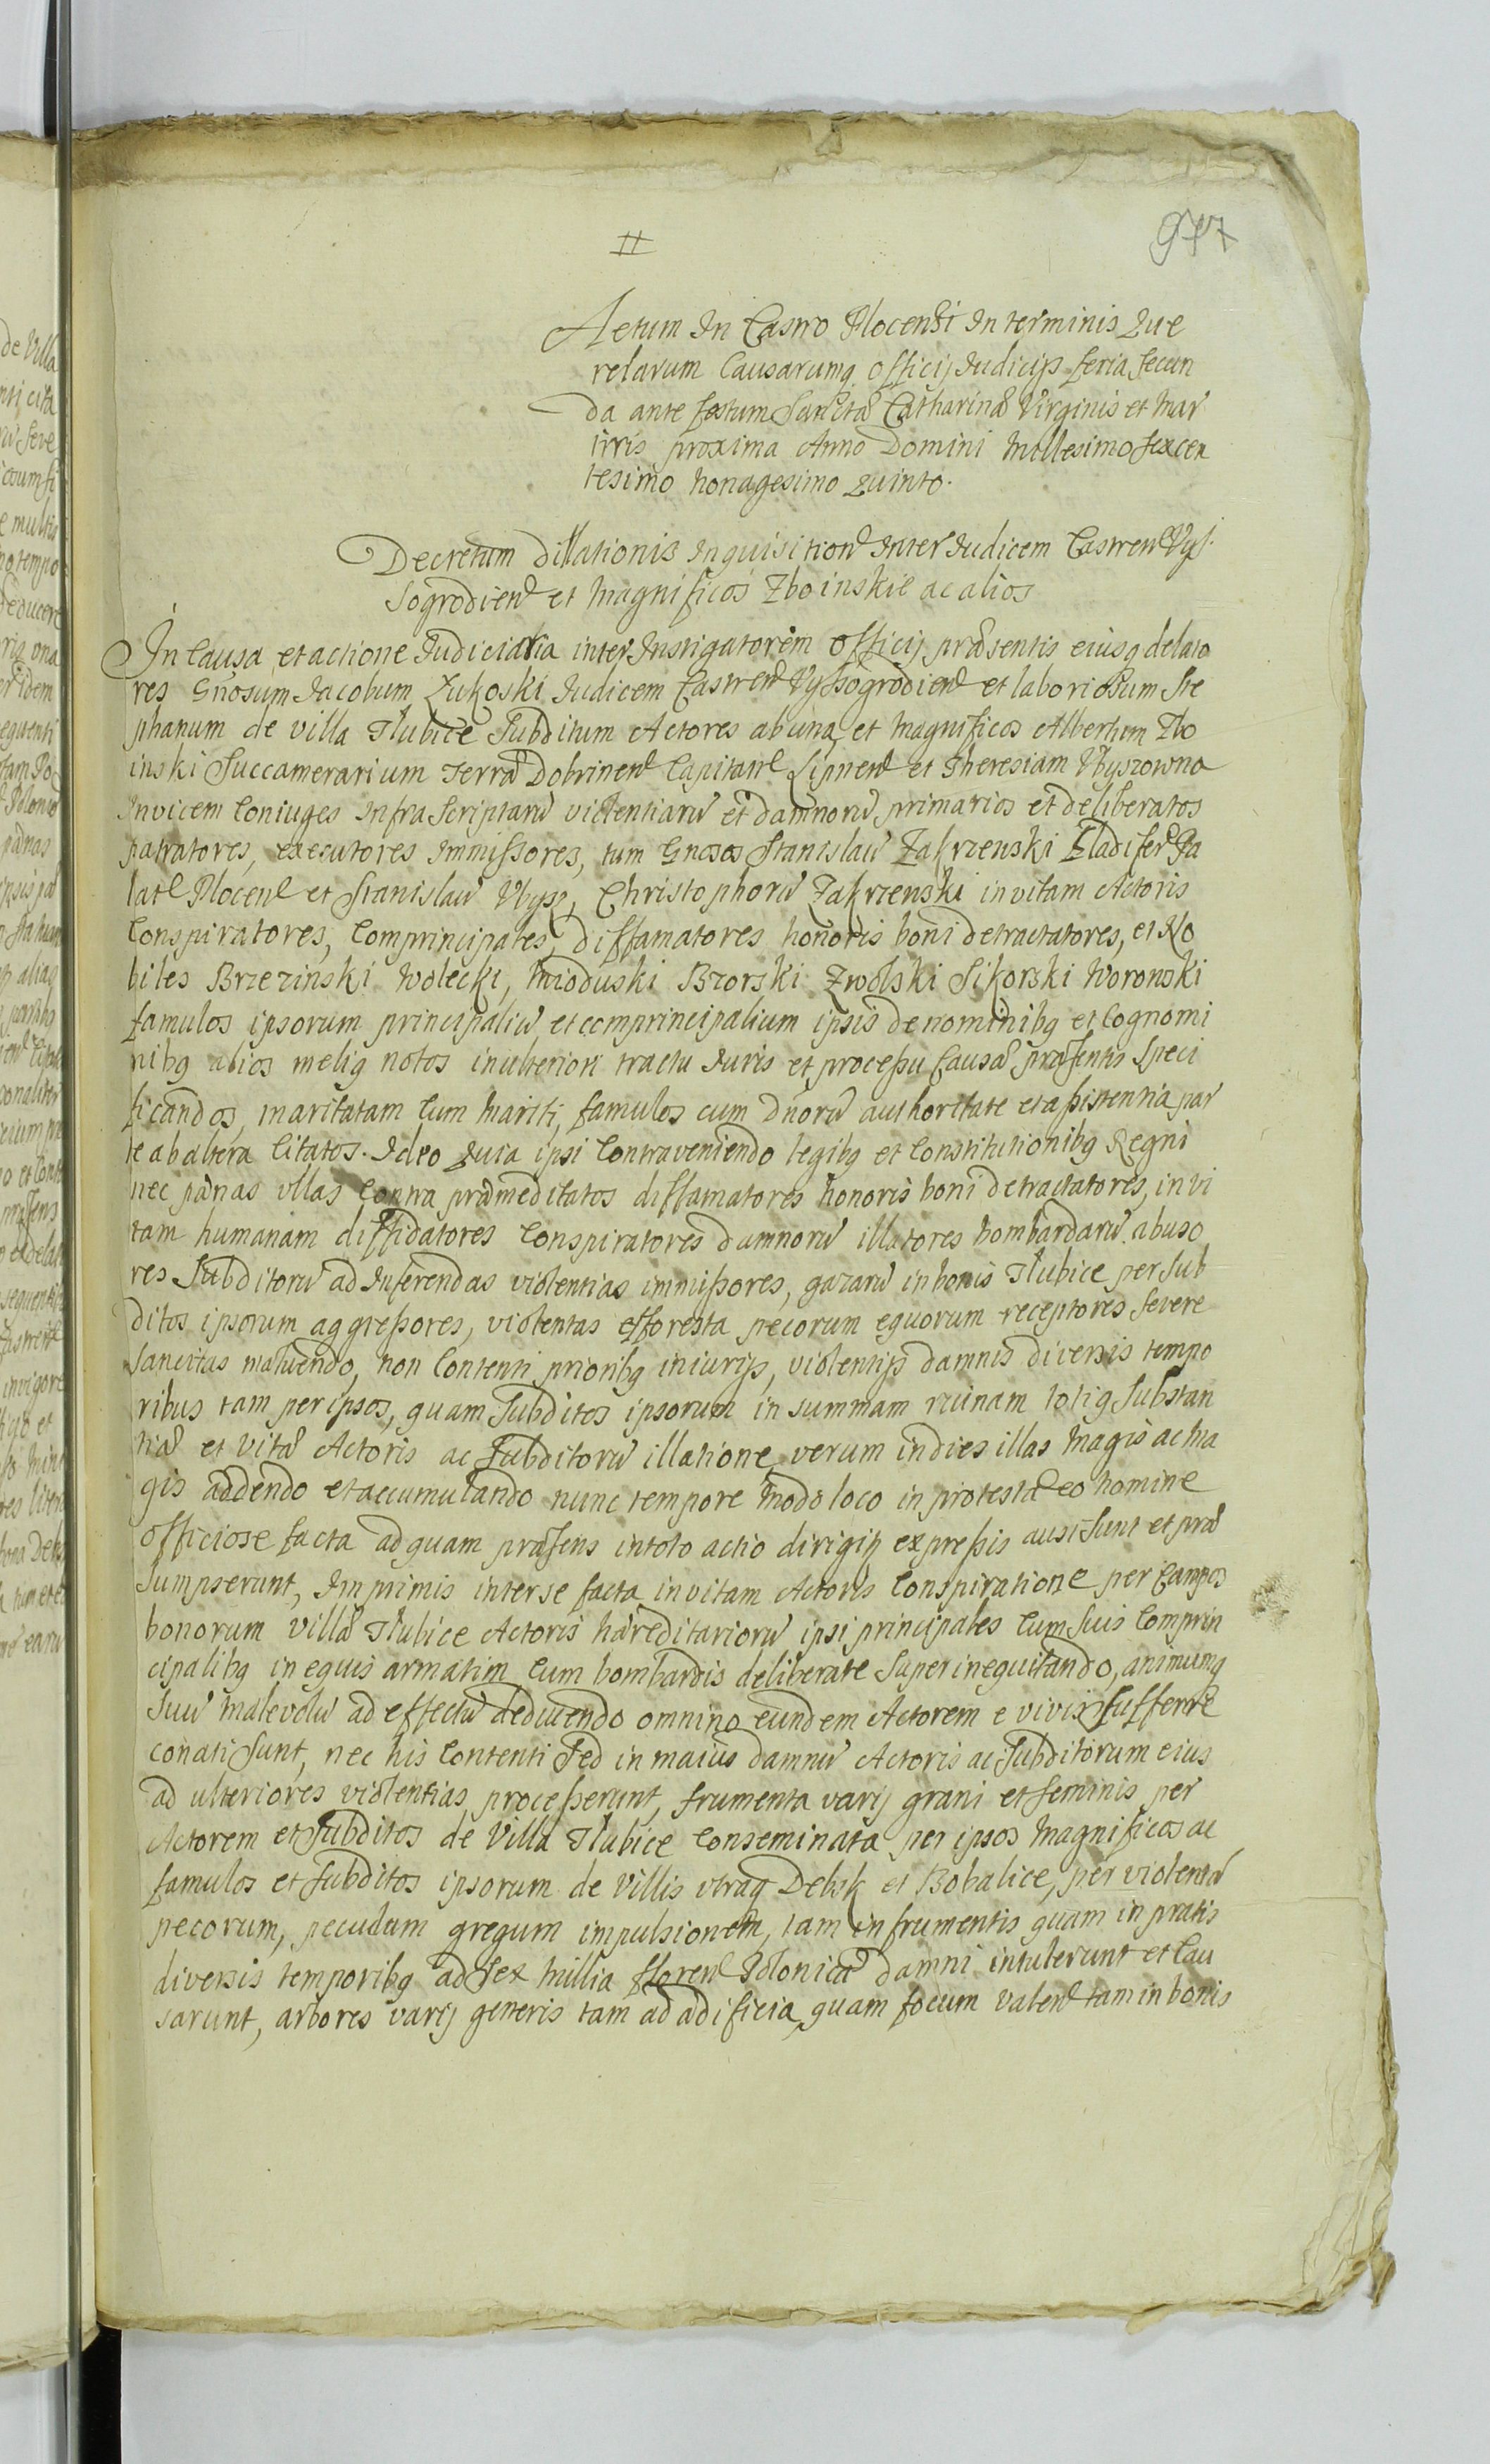 977
Actum In Castro Plocensi In terminis Que
relarum Causarumq Officij Judicijs feria secun
da ante festum Sanctæ Catharinæ Virginis et Mar
tiris proxima Anno Domini Millesimo sexcen
tesimo Nonagesimo Quinto.
Decretum dillationis Inquisition Inter Judicem Castren Vys
sogrodien et Magnificos Zboinskie ac alios
In Causa et actione Judiciaria inter Instigatorem Officij præsentis eiusq delato
res Gnosum Jacobum Zukoski Judicem Castren Vyssogrodien et laboriosum Ste
phanum de villa Tlubice Subditum Actores ab una et Magnificos Albertum Zbo
inski Succamerarium Terræ Dobrinen Capitan Lipnen et Theresiam
Invicem Coniuges Infra Scriptarū violentiarū et damnorū primarios et deliberatos
patratores, executores Immissores, tum Gnosos Stanislaū Zakrzewski Gladifer Pa
lat Plocen et Stanislaū , Christophorū Zakrzewski in vitam Actoris
Conspiratores, Comprincipales, diffamatores honoris boni detractatores, et No
biles Brzezinski Wolecki, Mioduski Bzorski Zwolski Sikorski Woronski
famulos ipsorum principaliū et comprincipalium ipsis de nominibq et Cognomi
nibq alios meliq notos in ulteriori tractu Juris et processu Causæ præsentis Speci
ficandos, maritatam Cum Mariti, famulos cum dnorū authoritate et assistentia par
te ab altera Citatos. Ideo Quia ipsi Contraveniendo legibq et Constitutionibq Regni
nec pænas ullas Contra præmeditatos diffamatores honoris boni detractatores, in vi
tam humanam diffidatores Conspiratores damnorū illatores bombardarū abuso
res Subditorū ad Inferendas violentias immissores, gazarū in bonis Tlubice per sub
ditos ipsorum aggressores, violentas pecorum equorum receptores Severe
sancitas metuendo, non Contenti prioribq iniurijs, violentijs damnis diversis tempo
ribus tam per ipsos, quam Subditos ipsorum in summam ruinam totiq Substan
tiæ et vitæ Actoris ac Subditorū illatione, verum in dies illas Magis ac Ma
gis addendo et accumulando nunc tempore Modo loco in protesta eo nomine
officiose facta ad quam præsens in toto actio dirigit expressis ausi Sunt et præ
sumpserunt, Imprimis inter se facta in vitam Actoris Conspiratione per Campos
bonorum villæ Tlubice Actoris hæreditariorū ipsi principales Cum Suis Comprin
cipalibq in equis armatim Cum bombardis deliberate Superinequitando, animumq
Suū malevolū ad effectū deducendo omnino eundem Actorem e vivis sufferre
conati Sunt, nec his Contenti Sed in maius damnū Actoris ac Subditorum eius
ad ulteriores violentias processerunt, frumenta varij grani et seminis per
Actorem et Subditos de Villa Tlubice Conseminata per ipsos Magnificos ac
famulos et subditos ipsorum de villis utraq Debsk et Bobalice, per violentā
pecorum, pecudum gregum impulsionem, tam in frumentis quam in pratis
diversis temporibq ad Sex Millia floren Polonica damni intulerunt et Cau
sarunt, arbores varij generis tam ad ædificia, quam focum valen tam in bonis